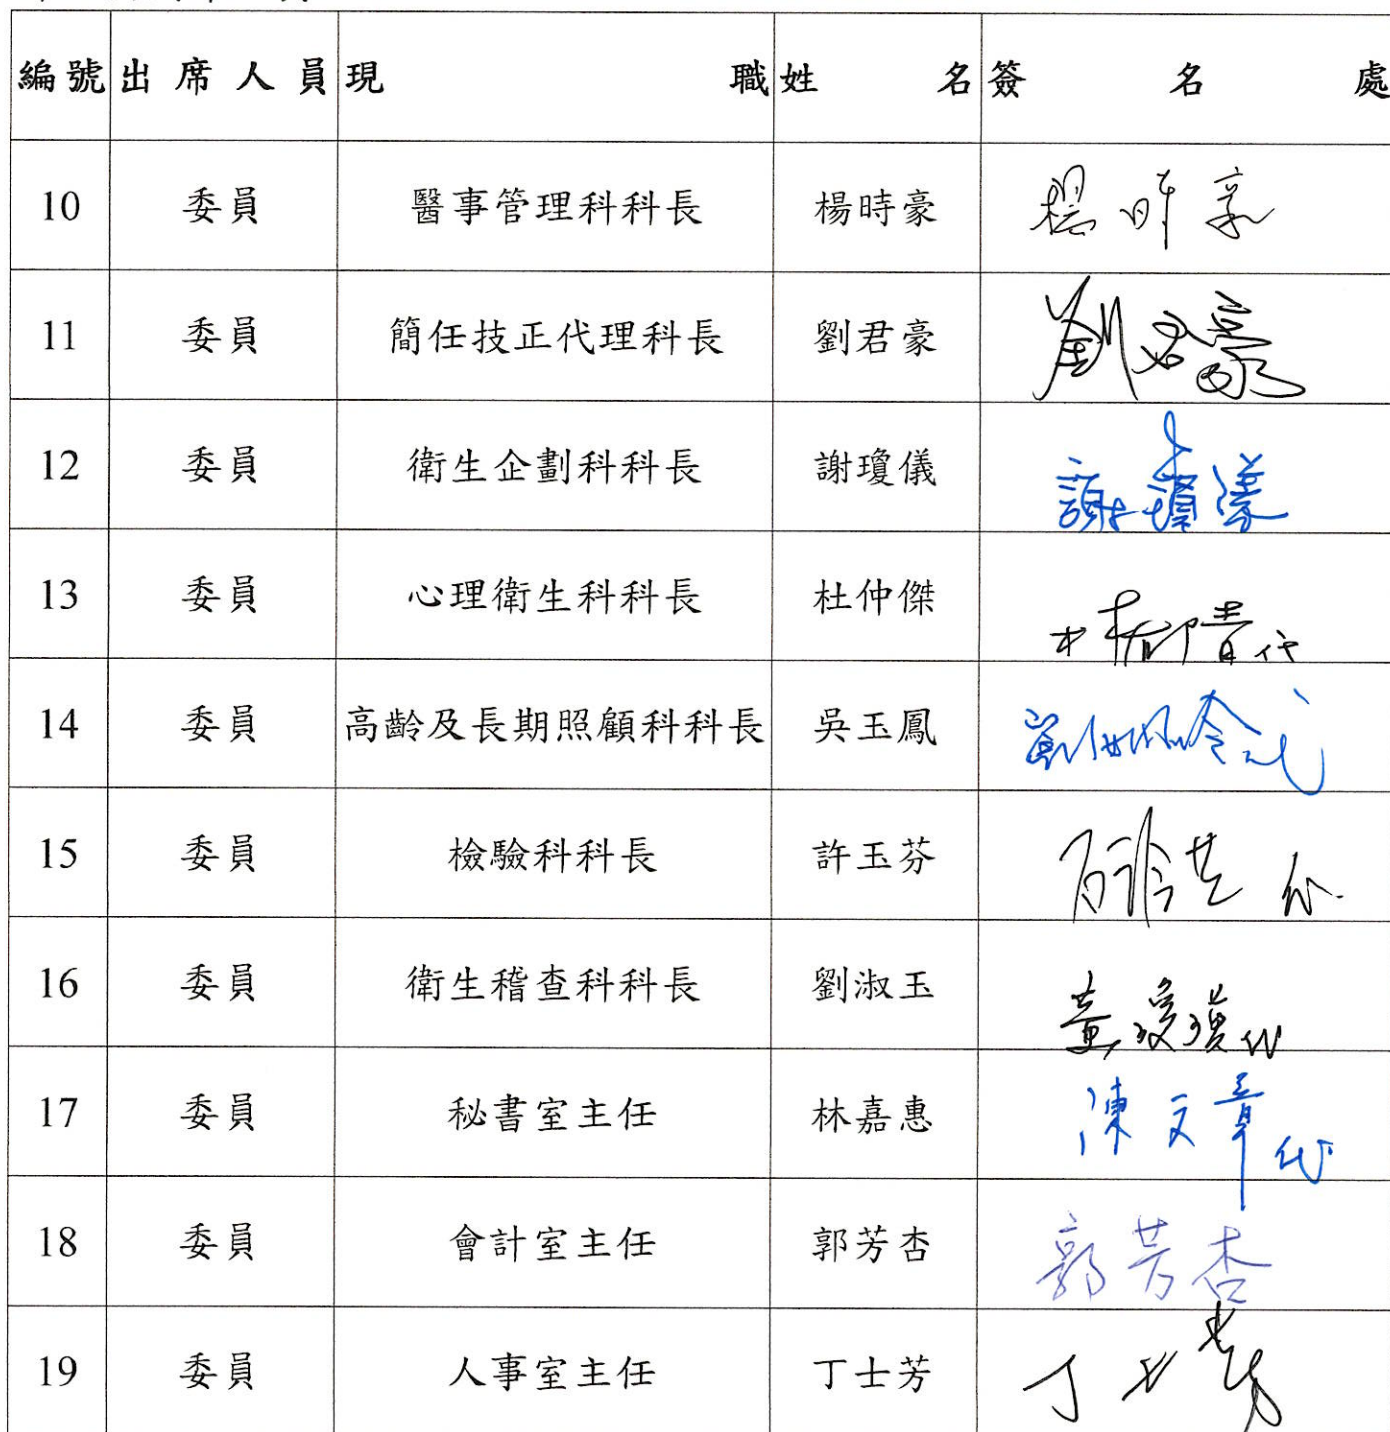 編號 出席人員 現職 姓名 簽名處
10 委員 醫事管理科科長 楊時豪 楊時豪
11 委員 簡任技正代理科長 劉君豪 劉君豪
12 委員 衛生企劃科科長 謝瓊儀 謝瓊儀
13 委員 心理衛生科科長 杜仲傑
14 委員 高齡及長期照顧科科長 吳玉鳳
15 委員 檢驗科科長 許玉芬
16 委員 衛生稽查科科長 劉淑玉
17 委員 秘書室主任 林嘉惠 陳文章代
18 委員 會計室主任 郭芳杏 郭芳杏
19 委員 人事室主任 丁士芳 丁士芳